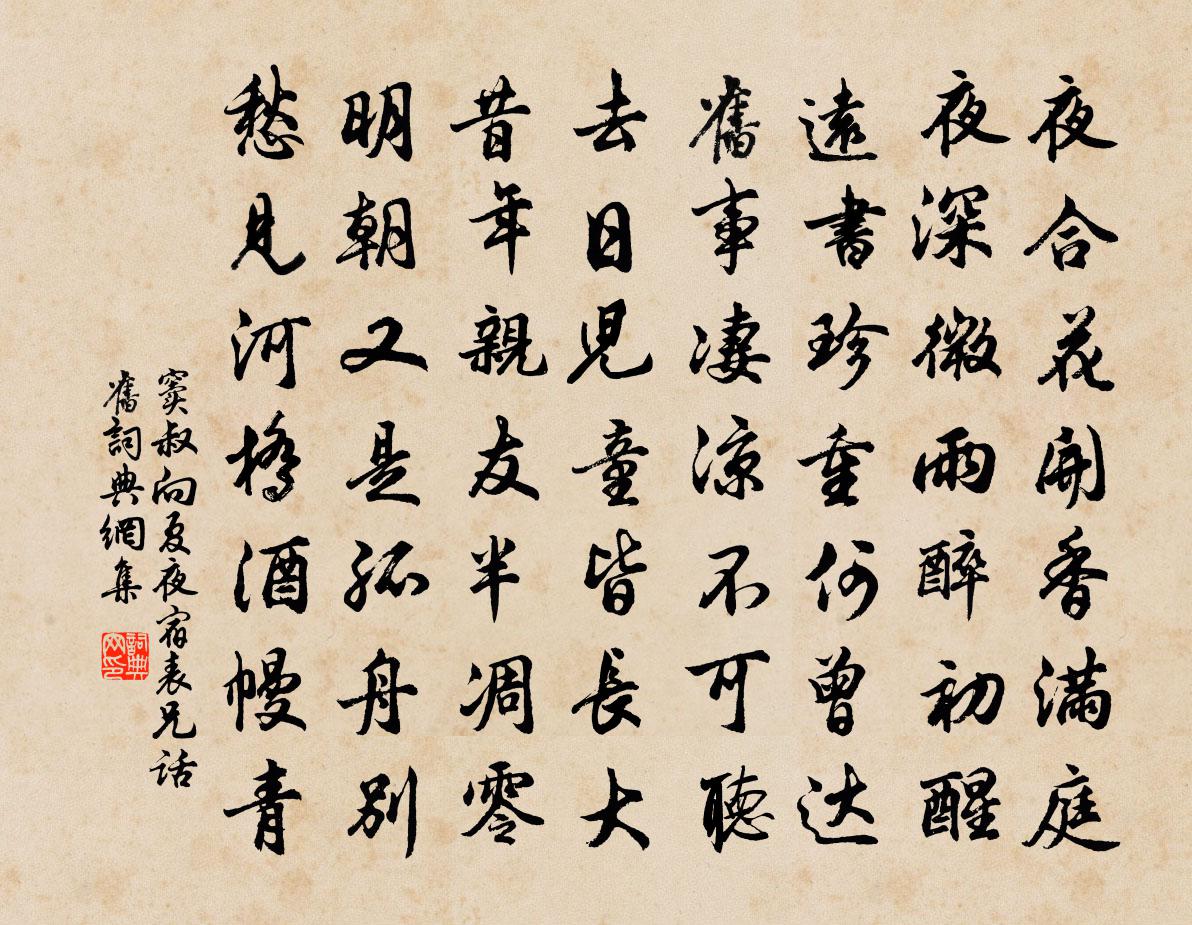 夜合花開香滿庭
夜深微雨醉初醒
遠書珍重何曾达
舊事凄涼不可聽
去日兒童皆長大
昔年親友半凋零
明朝又是孤舟別
愁見河橋酒幔青
竇叔向夏夜宿表兄話
舊詞典網集
詞典
网印